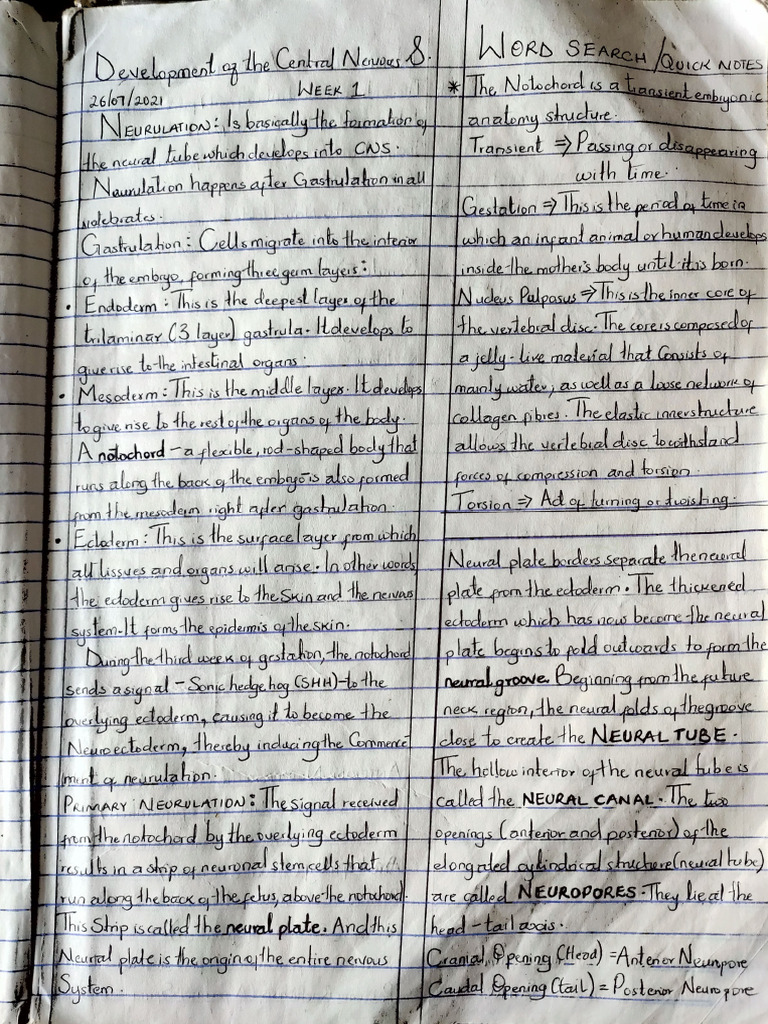 Development of the Central Nervous S.
26/07/2021 WEEK 1
NEURULATION: Is basically the formation of
the neural tube which develops into CNS.
Neurulation happens after Gastrulation in all
vertebrates.
Gastrulation: Cells migrate into the interior
of the embryo, forming three germ layers:
• Endoderm: This is the deepest layer of the
trilaminar (3 layer) gastrula. It develops to
give rise to the intestinal organs.
• Mesoderm: This is the middle layer. It develops
to give rise to the rest of the organs of the body.
A notochord - a flexible, rod-shaped body that
runs along the back of the embryo is also formed
from the mesoderm right after gastrulation.
• Ectoderm: This is the surface layer from which
all tissues and organs will arise. In other words
the ectoderm gives rise to the skin and the nervous
system. It forms the epidermis of the skin.
During the third week of gestation, the notochord
sends a signal - Sonic hedgehog (SHH) - to the
overlying ectoderm, causing it to become the
Neuroectoderm, thereby inducing the Commence
ment of neurulation.
PRIMARY NEURULATION: The signal received
from the notochord by the overlying ectoderm
results in a strip of neuronal stem cells that
run along the back of the fetus, above the notochord.
This Strip is called the neural plate. And this
Neural plate is the origin of the entire nervous
System.
WORD SEARCH/QUICK NOTES
* The Notochord is a transient embryonic
anatomy structure.
Transient ⇒ Passing or disappearing
with time.
Gestation ⇒ This is the period of time in
which an infant animal or human develops
inside the mother's body until it is born.
Nucleus Pulposus ⇒ This is the inner core of
the vertebral disc. The core is composed of
a jelly-like material that consists of
mainly water; as well as a loose network of
collagen fibres. The elastic inner structure
allows the vertebral disc to withstand
forces of compression and torsion.
Torsion ⇒ Act of turning or twisting.
Neural plate borders separate the neural
plate from the ectoderm. The thickened
ectoderm which has now become the neural
plate begins to fold outwards to form the
neural groove. Beginning from the future
neck region, the neural folds of the groove
close to create the NEURAL TUBE.
The hollow interior of the neural tube is
called the NEURAL CANAL. The two
openings (anterior and posterior) of the
elongated cylindrical structure (neural tube)
are called NEUROPORES. They lie at the
head-tail axis.
Cranial Opening (Head) = Anterior Neuropore
Caudal Opening (tail) = Posterior Neuropore